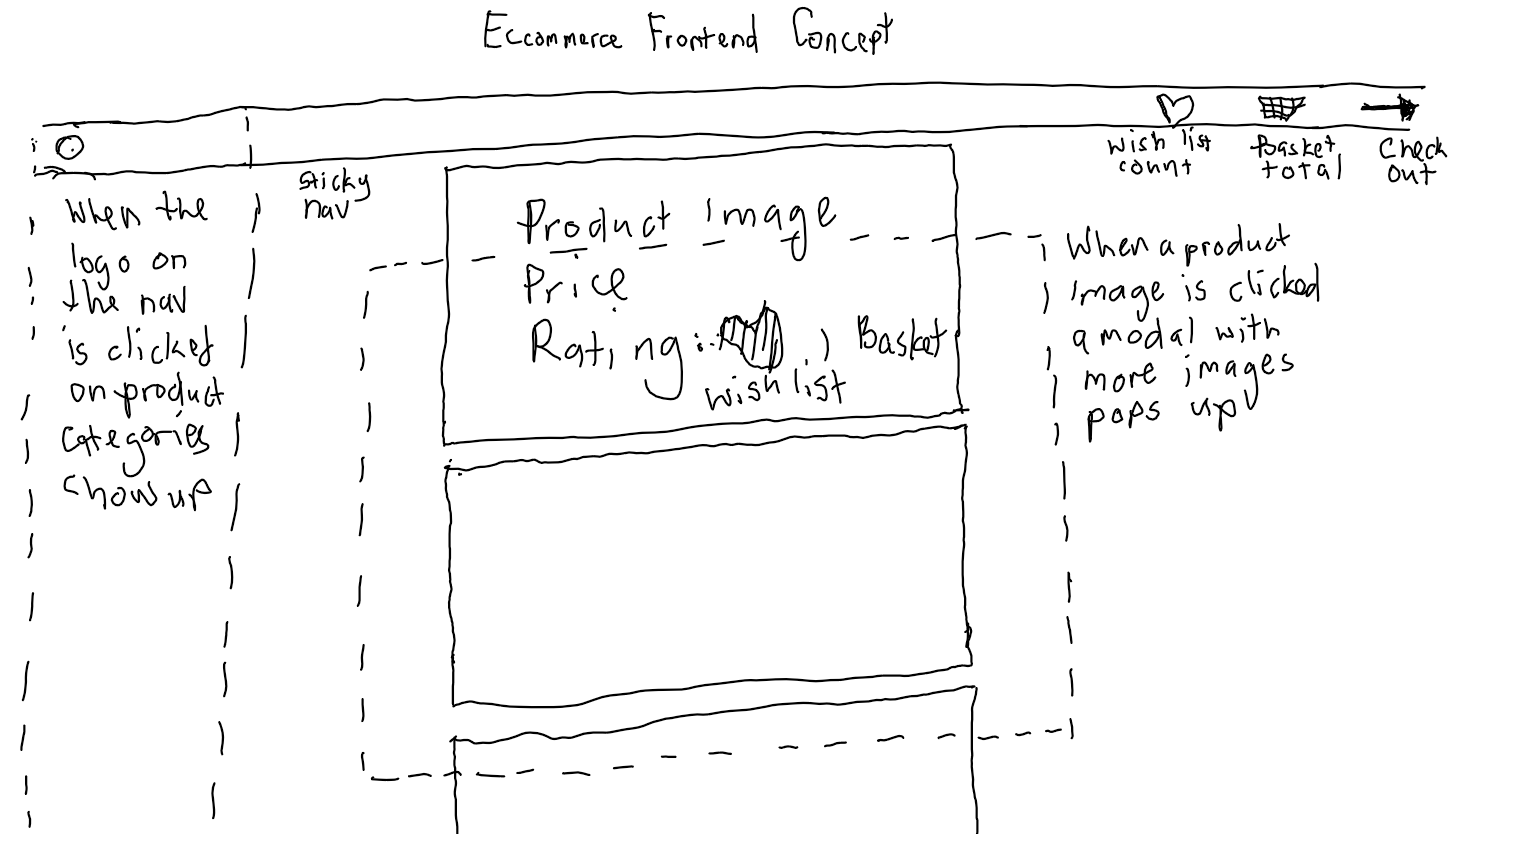 Eccommerce Frontend Concept
wish list
count
Basket
total
Check
out
Sticky
nav
When the
logo on
the nav
is clicked
on product
categories
show up
Product image
Price
Rating: , Basket
wish list
When a product
image is clicked
a modal with
more images
pops up